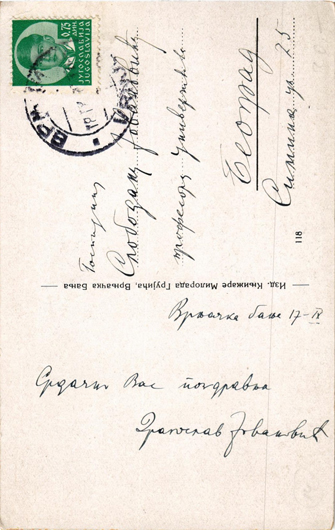 0,75
ДИН.
ЈУГОСЛАВИЈА
JUGOSLAVIJA
Господину
Слободану Јовановићу
професору Универзитета
Београд
Симина ул. 25
118
Изд. Књижаре Милорада Грујића, Врњачка Бања
Врњачка бања 17-IV
Срдачно Вас поздравља
Драгослав Јовановић